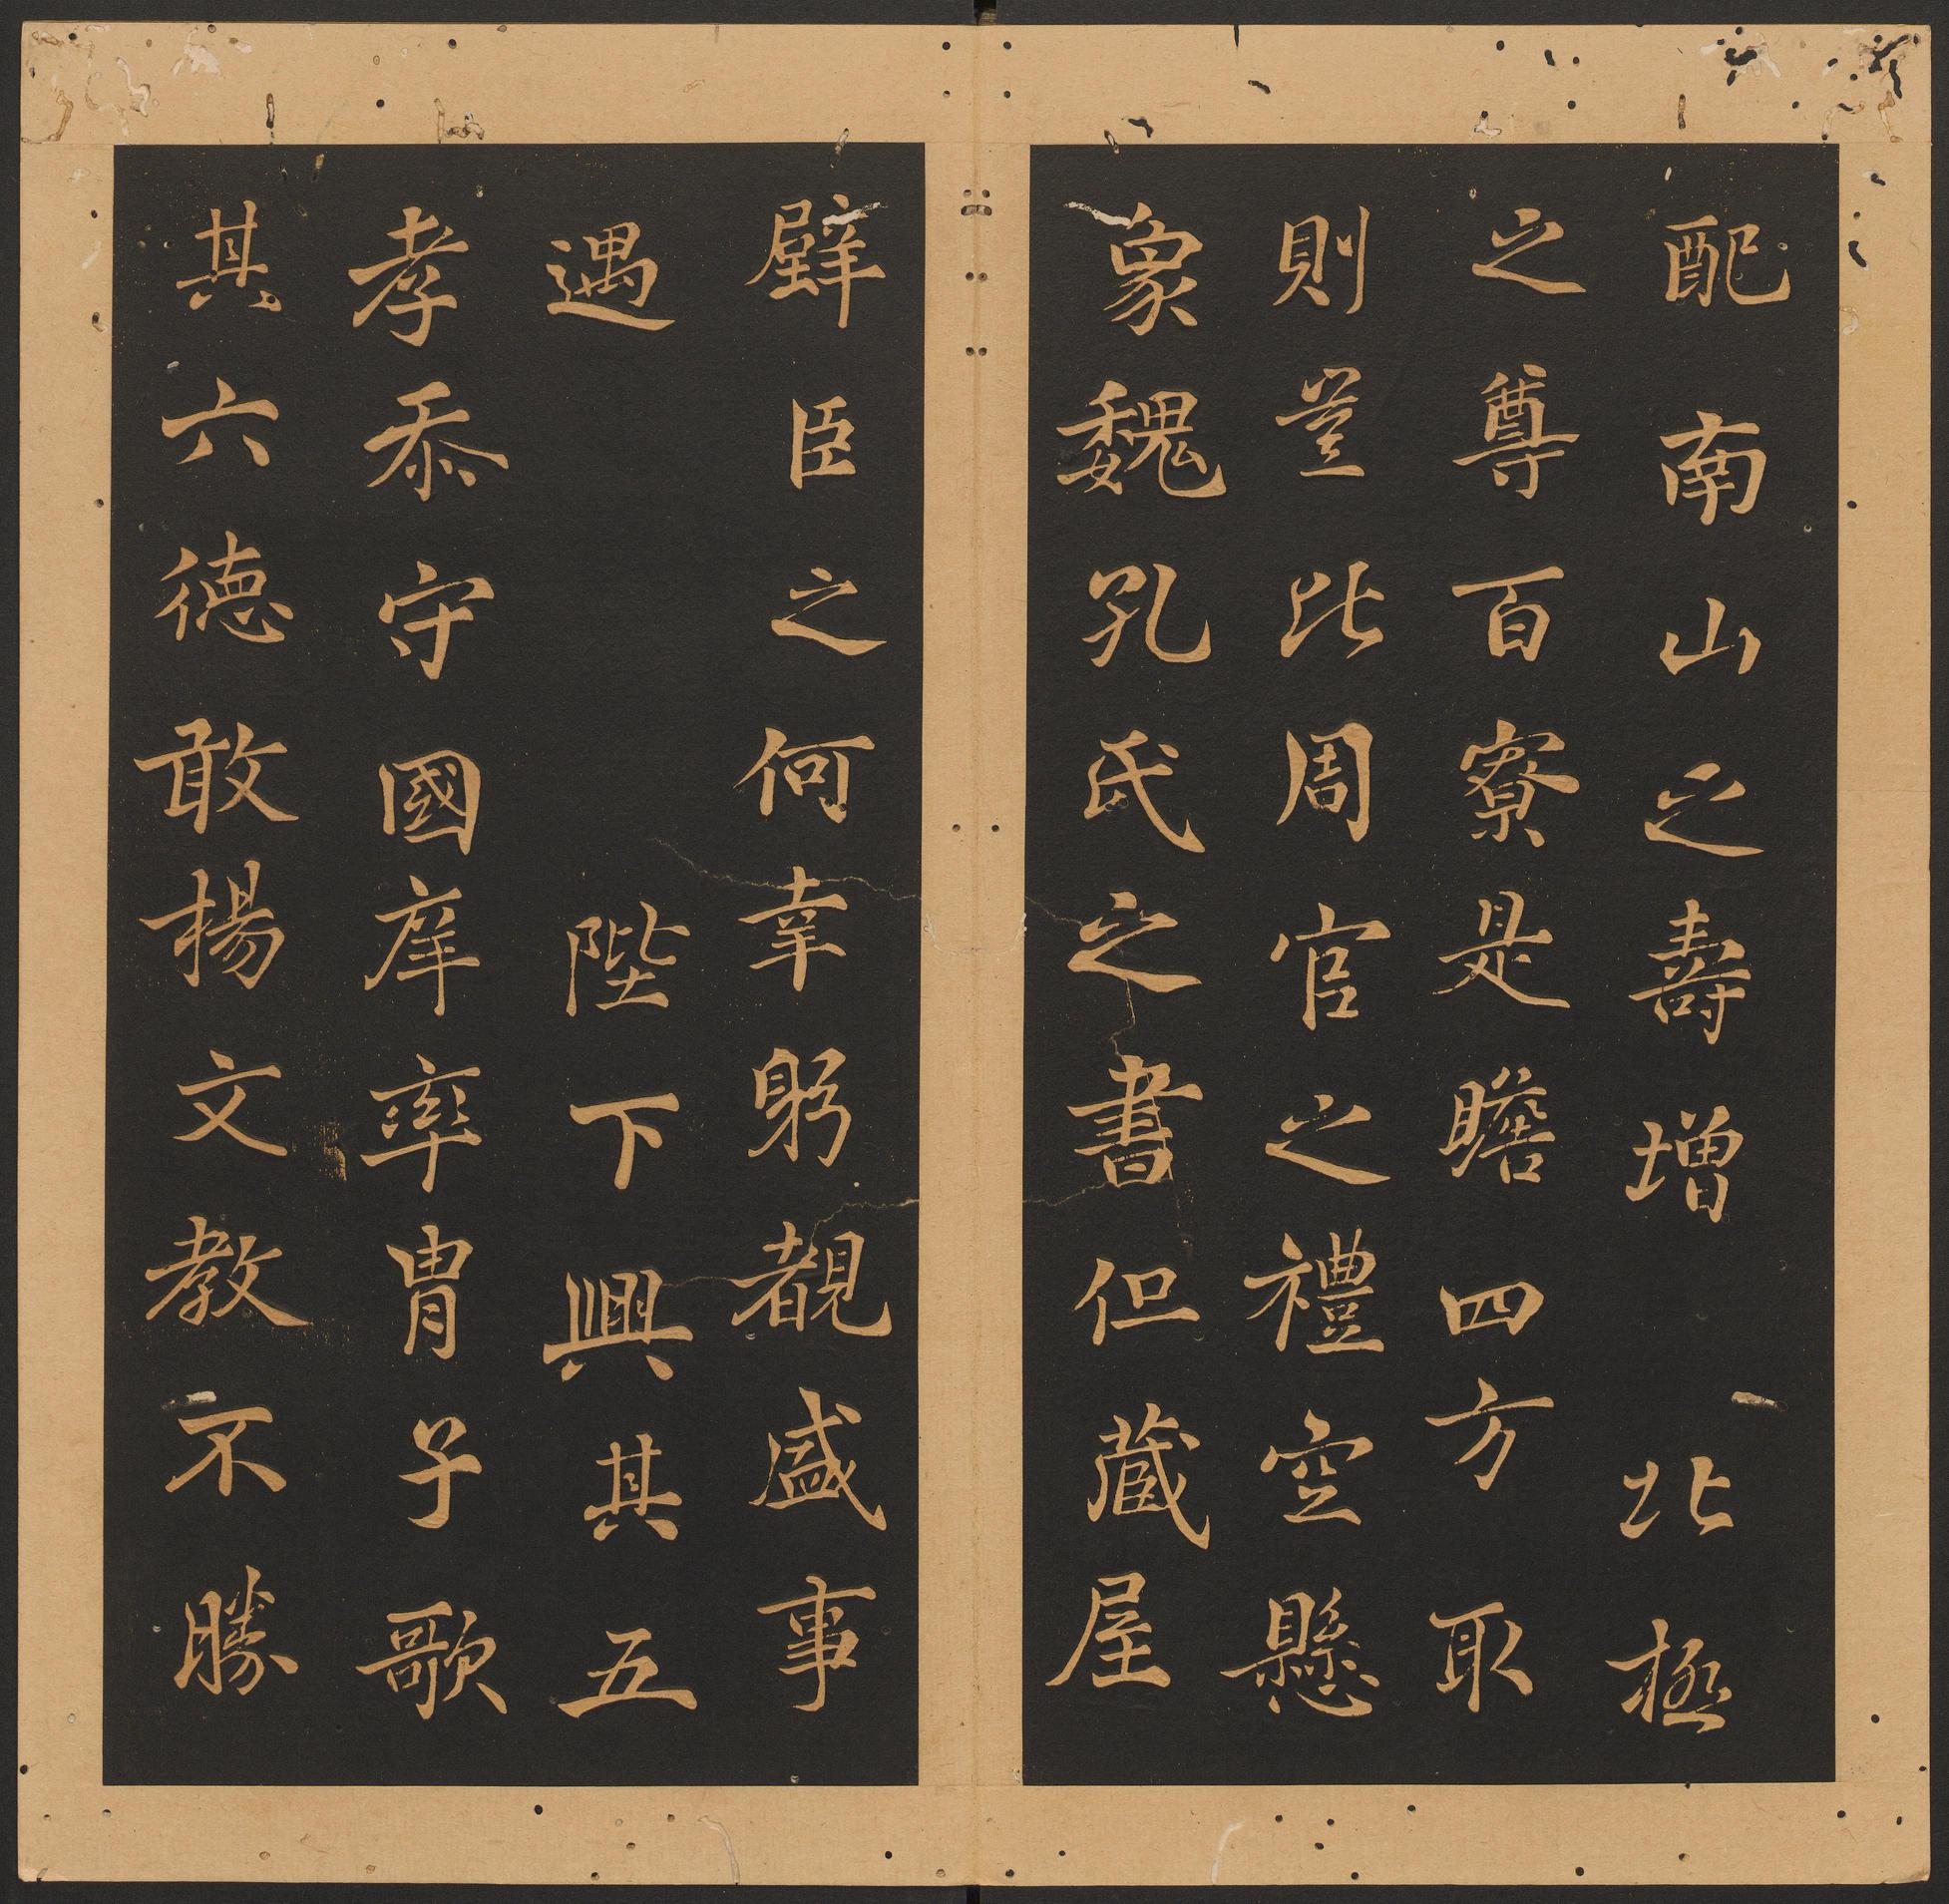 配南山之壽增北極
之尊百寮是瞻四方取
則豈比周官之禮空懸
象魏孔氏之書但藏屋
壁臣之何幸躬覩盛事
遇陛下興其五
孝忝守國庠率胄子歌
其六德敢揚文教不勝